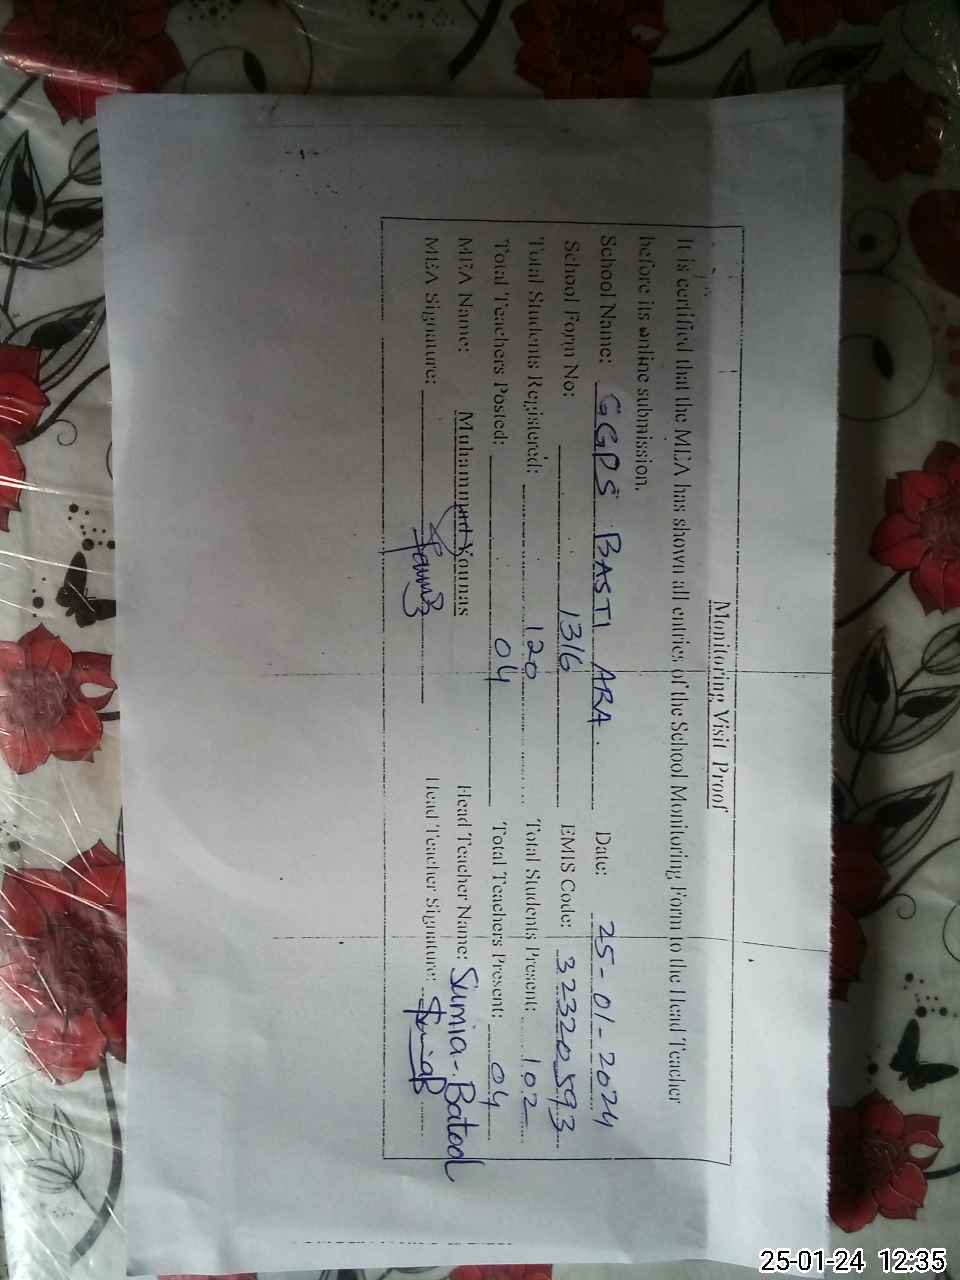 Monitoring Visit Proof
It is certified that the MEA has shown all entries of the School Monitoring Form to the Head Teacher
before its online submission.
School Name: GGPS BASTI ARA. Date: 25-01-2024
School Form No: 1316 EMIS Code: 32320593
Total Students Registered: 120 Total Students Present: 102
Total Teachers Posted: 04 Total Teachers Present: 04
MEA Name: Muhammad Younas Head Teacher Name: Sumia-Batool
MEA Signature: Head Teacher Signature:
25-01-24 12:35